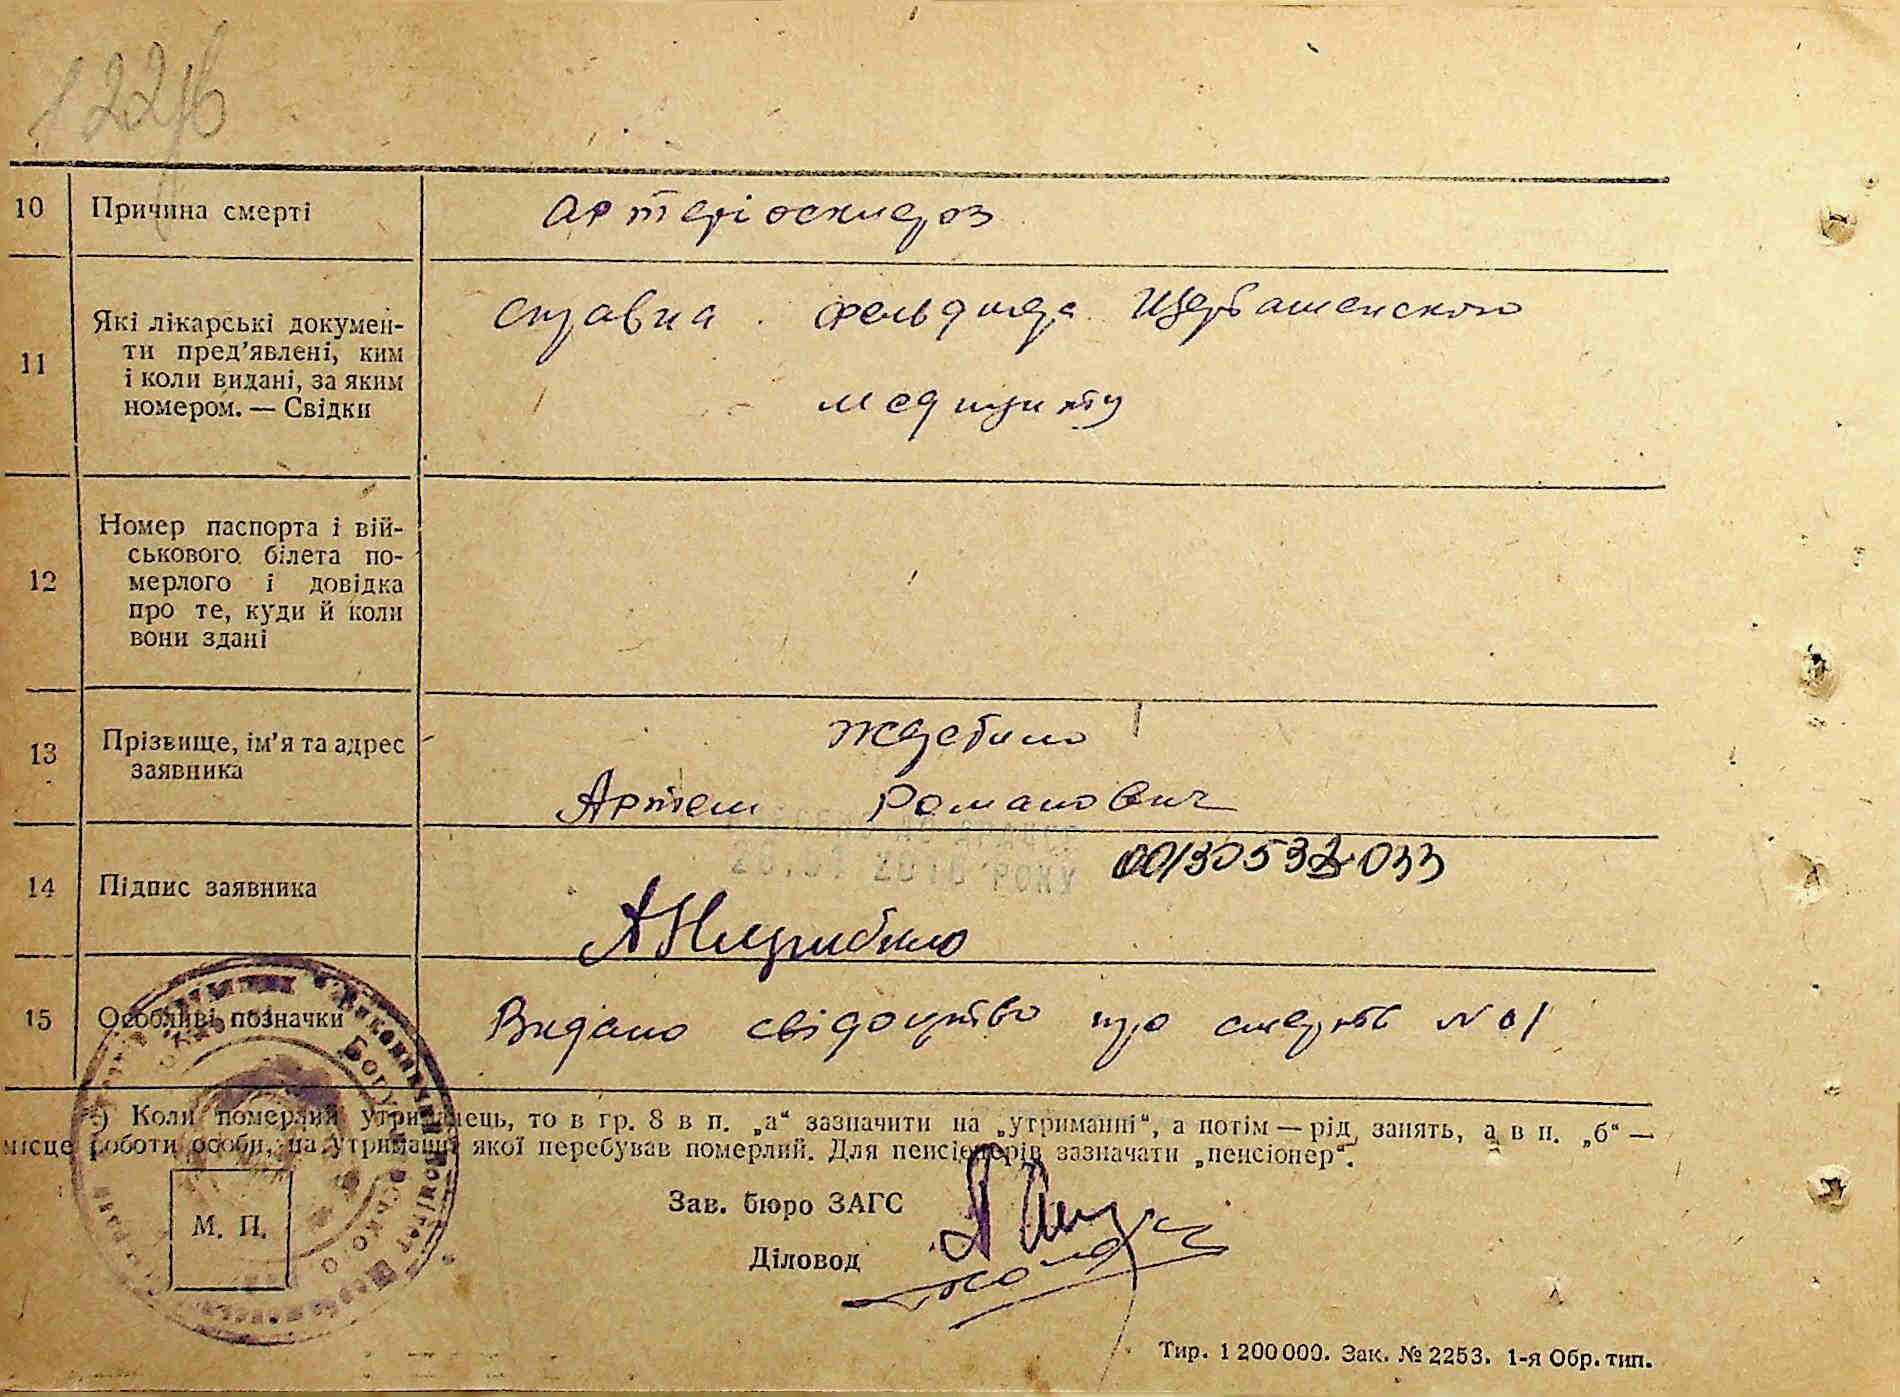 122
10 Причина смерті артеріосклероз
11 Які лікарські докумен-
ти пред'явлені, ким
і коли видані, за яким
номером. — Свідки
справка фельдшера Щербашенского
медпункту
12 Номер паспорта і вій-
ськового білета по-
мерлого і довідка
про те, куди й коли
вони здані
13 Прізвище, ім'я та адрес
заявника
Жеребило
Артем Романович
РОКУ
14 Підпис заявника
15 Особливі позначки Видано свідоцтво про смерть № 01
*) Коли померлий утриманець, то в гр. 8 в п. „а“ зазначити на „утриманні“, а потім — рід занять, а в п. „б“ —
місце роботи особи, на утриманні якої перебував померлий. Для пенсіонерів зазначати „пенсіонер“.
Зав. бюро ЗАГС
М. П.
Діловод
Тир. 1 200 000. Зак. № 2253. 1-я Обр. тип.